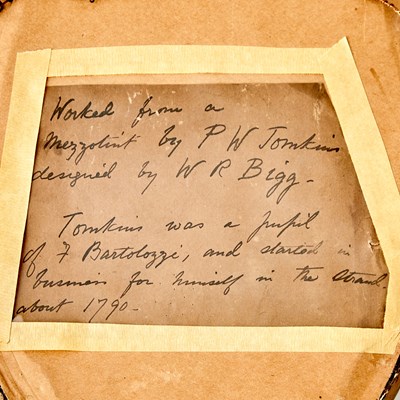 Worked from a
mezzotint by P W Tomkins
designed by W R Bigg -
Tomkins was a pupil
of F Bartolozzi, and started in
business for himself in the Strand.
about 1790 -